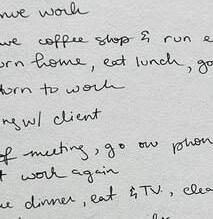 work
coffee shop & run
home, eat lunch, go
to work
w/ client
of meeting, go on phon
work again
dinner, eat & TV, clea